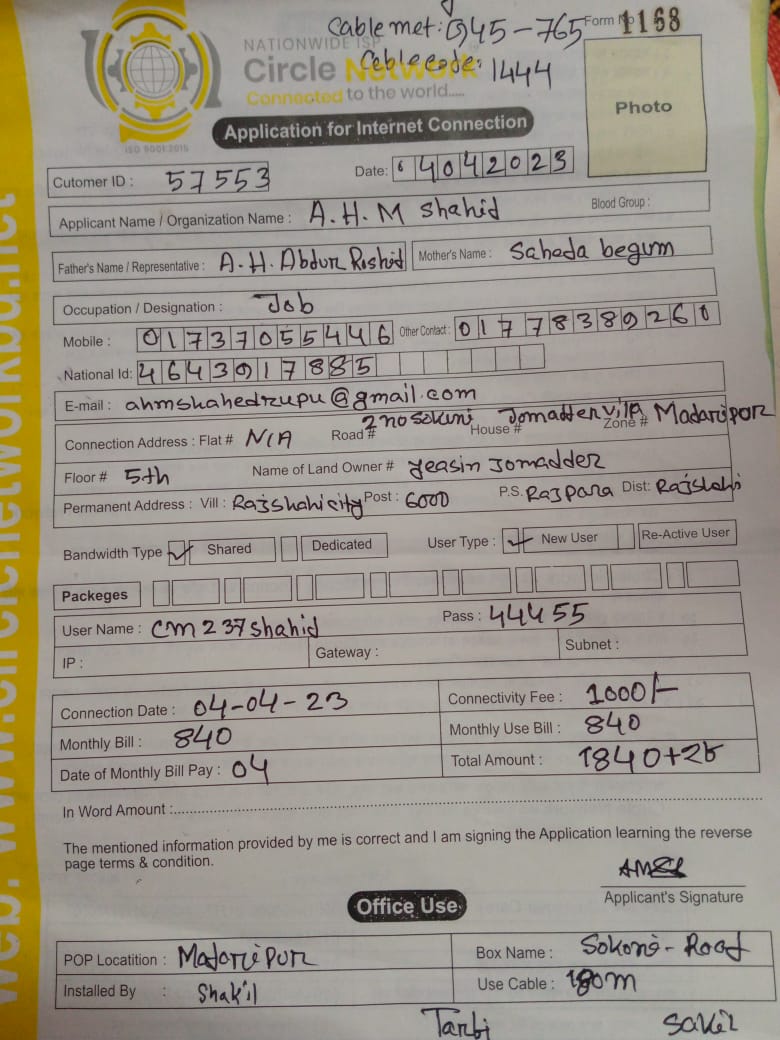 Cable met: 945-765 Form No 1168
NATIONWIDE ISP
Cable code: 1444
Circle Network
Connected to the world.....
ISO 9001:2015
Application for Internet Connection
Photo
Cutomer ID : 57553
Date: 04042023
Applicant Name / Organization Name : A.H.M Shahid Blood Group :
Father's Name / Representative : A.H. Abdur Roshid Mother's Name : Saheda begum
Occupation / Designation : Job
Mobile : 01737055446 Other Contact : 01778389260
National Id: 4643917885
E-mail : ahmshahedrupu@gmail.com
Connection Address : Flat # N/A Road # 2 no Sokuni House # Jomadder villa Zone # Madaripor
Floor # 5th Name of Land Owner # Jeasin Jomadder
Permanent Address : Vill : Rajshahi city Post : 6000 P.S. Rajpara Dist: Rajshahi
Bandwidth Type ✓ Shared Dedicated User Type : ✓ New User Re-Active User
Packeges
User Name : cm237shahid Pass : 44455
IP : Gateway : Subnet :
Connection Date : 04-04-23 Connectivity Fee : 1000/-
Monthly Bill : 840 Monthly Use Bill : 840
Date of Monthly Bill Pay : 04 Total Amount : 1840+25
In Word Amount :
The mentioned information provided by me is correct and I am signing the Application learning the reverse
page terms & condition.
Applicant's Signature
Office Use
POP Locatition : Madaripur Box Name : Sokoni-Road
Installed By : Shakil Use Cable : 180m
Tanbi Sakil
web: www.circlenetworkbd.net